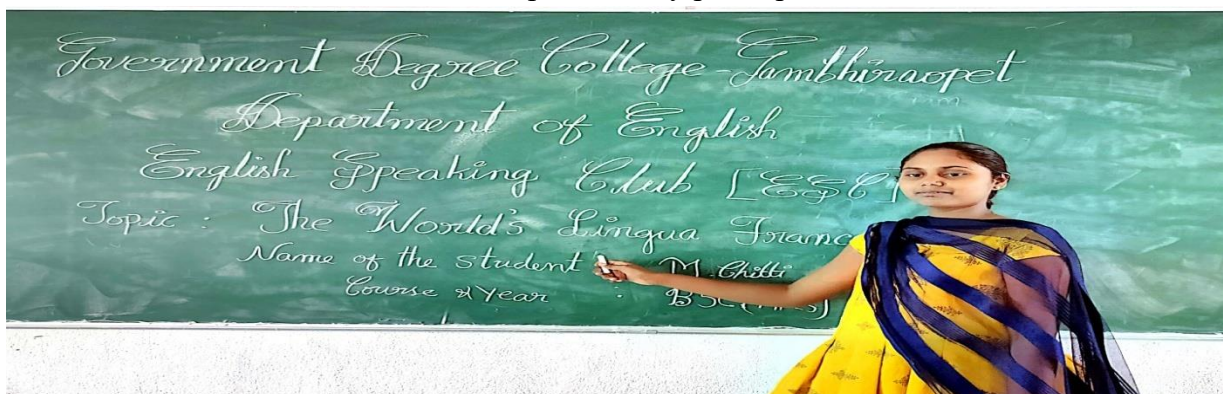 Government Degree College-Gambhiraopet
Department of English
English Speaking Club [ESC]
Topic : The World's Lingua Franc
Name of the student : M. Chitti
Course & Year : BSC